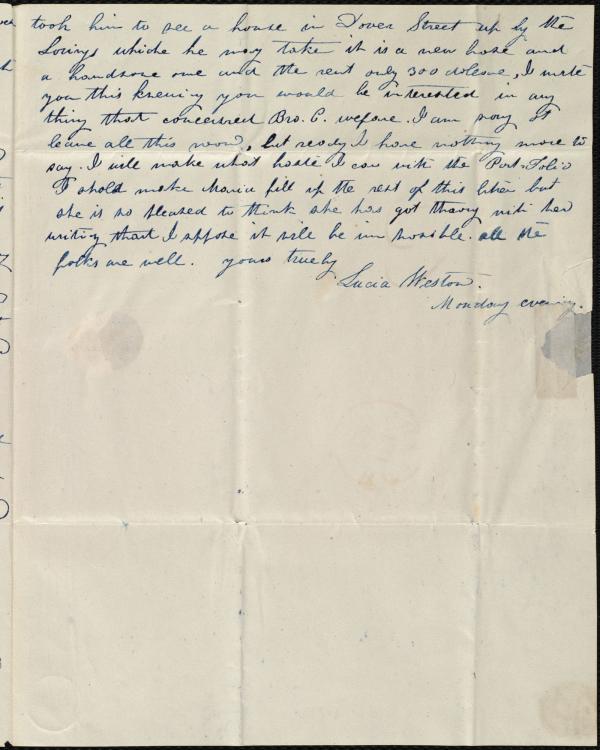 took him to see a house in Dover Street up by the
Lorings whiche he may take it is a new hose and
a handsome one and the rent only 300 dolears, I write
you this knewing you would be interested in any
thing that concerned Bro. C. welfare. I am sorry to
leave all this room, but realy I have nothing more to
say. I will make what haste I can with the Port-Folio
I shold make Maria fill up the rest of this letter but
she is so pleased to think she has got through with her
writing that I suppose it will be impossible. all the
folks are well. yours truely
Lucia Weston.
Monday evening.